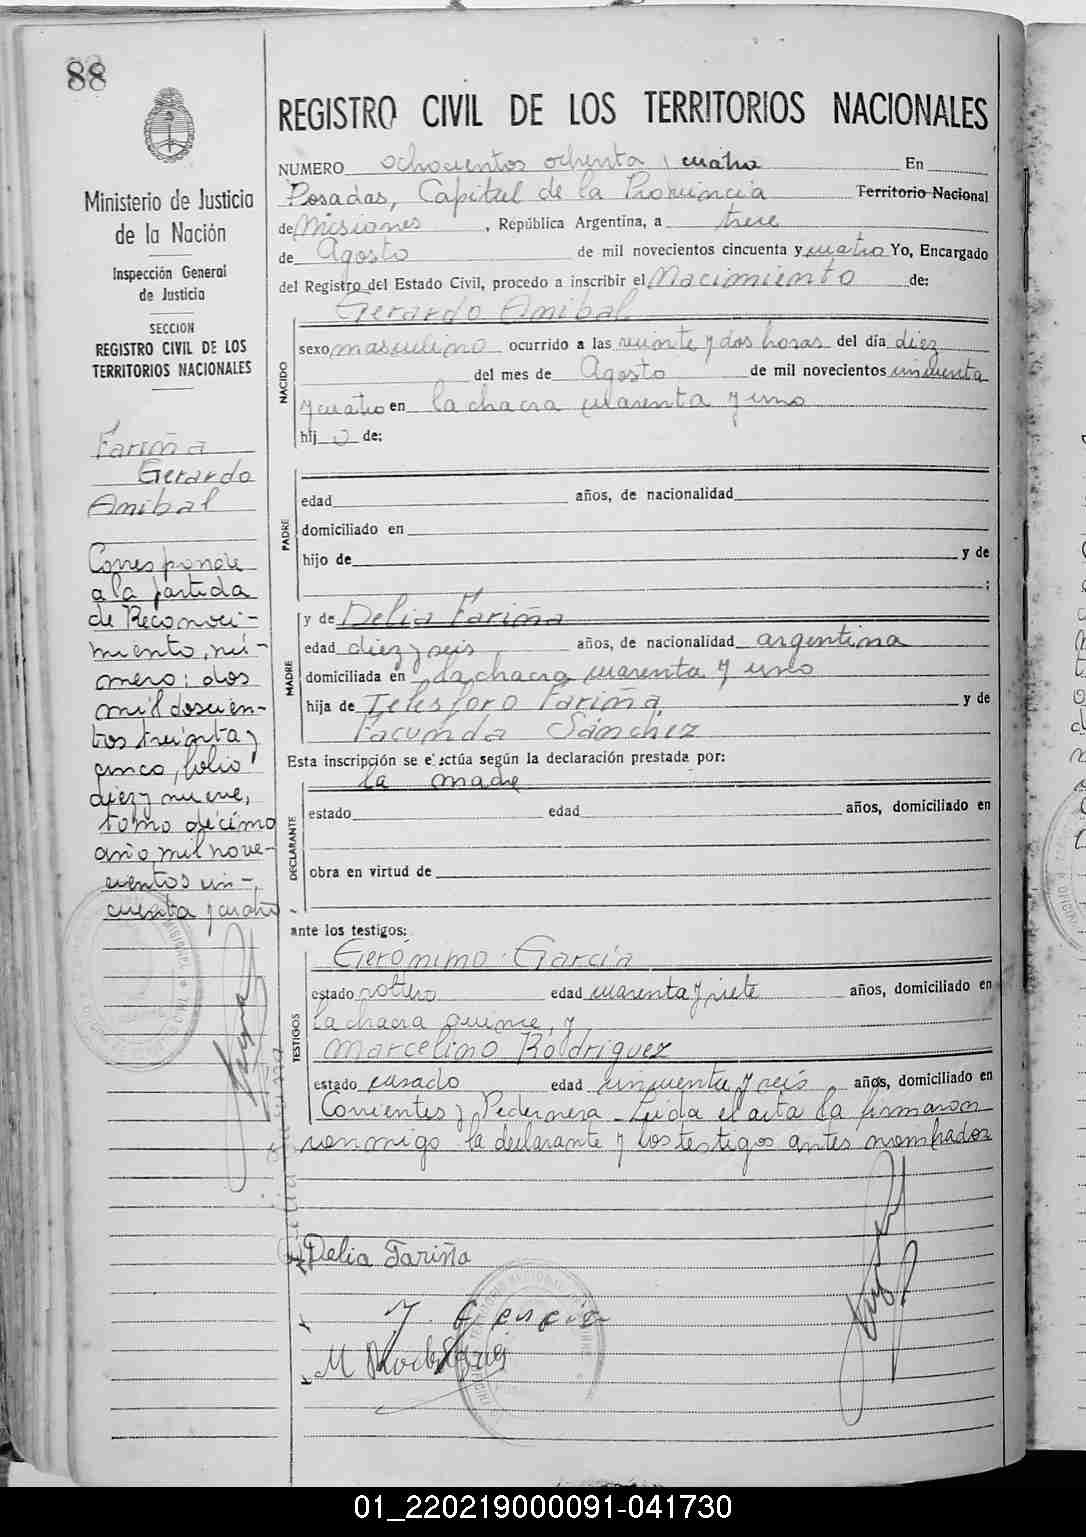 88
Ministerio de Justicia
de la Nación
Inspección General
de Justicia
SECCION
REGISTRO CIVIL DE LOS
TERRITORIOS NACIONALES
Fariña
Gerardo
Anibal
Corresponde
a la partida
de Reconoci-
miento, nú-
mero: dos
mil doscien-
tos treinta y
cinco, folio
diez y nueve,
tomo décimo
año mil nove-
cientos cin-
cuenta y cuatro
REGISTRO CIVIL DE LOS TERRITORIOS NACIONALES
NUMERO ochocientos ochenta y cuatro En
Posadas, Capital de la Provincia Territorio Nacional
de Misiones, República Argentina, a trece
de Agosto de mil novecientos cincuenta y cuatro Yo, Encargado
del Registro del Estado Civil, procedo a inscribir el Nacimiento de:
Gerardo Anibal
NACIDO
sexo masculino ocurrido a las veinte y dos horas del día diez
del mes de Agosto de mil novecientos cincuenta
y cuatro en la chacra cuarenta y uno
hijo de:
PADRE
edad años, de nacionalidad
domiciliado en
hijo de y de
;
MADRE
y de Delia Fariña
edad diez y seis años, de nacionalidad argentina
domiciliada en la chacra cuarenta y uno
hija de Telesforo Fariña y de
Facunda Sánchez
Esta inscripción se efectúa según la declaración prestada por:
la madre
DECLARANTE
estado edad años, domiciliado en
obra en virtud de
ante los testigos:
Gerónimo García
TESTIGOS
estado soltero edad cuarenta y siete años, domiciliado en
la chacra quince, y
Marcelino Rodriguez
estado casado edad cincuenta y seis años, domiciliado en
Corrientes y Pedernera. Leida el acta la firmaron
conmigo la declarante y los testigos antes nombrados
Delia Fariña
J. Garcia
M Rodriguez
01_220219000091-041730